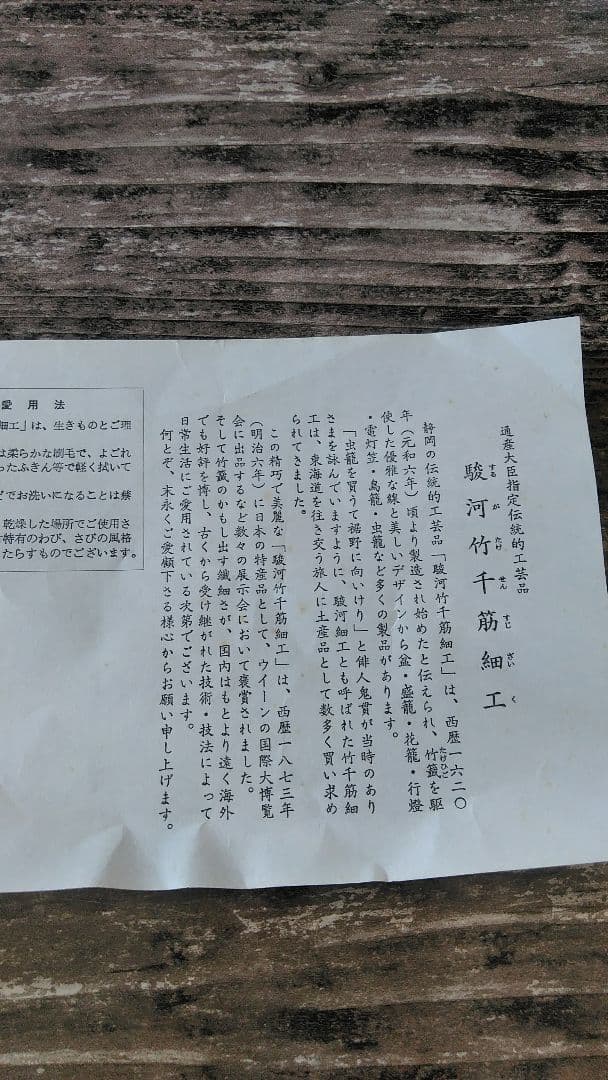 通産大臣指定伝統的工芸品
駿河竹千筋細工
するがたけせんすじざいく
静岡の伝統的工芸品「駿河竹千筋細工」は、西暦一六二〇
年(元和六年)頃より製造され始めたと伝えられ、竹籤を駆
たけひご
使した優雅な線と美しいデザインから盆・盛籠・花籠・行燈
・電灯笠・鳥籠・虫籠など多くの製品があります。
「虫籠を買うて裾野に向いけり」と俳人鬼貫が当時のあり
さまを詠んでいますように、駿河細工とも呼ばれた竹千筋細
工は、東海道を往き交う旅人に土産品として数多く買い求め
られてきました。
この精巧で美麗な「駿河竹千筋細工」は、西歴一八七三年
(明治六年)に日本の特産品として、ウイーンの国際大博覧
会に出品するなど数々の展示会において褒賞されました。
そして竹籤のかもし出す繊細さが、国内はもとより遠く海外
でも好評を博し、古くから受け継がれた技術・技法によって
日常生活にご愛用されている次第でございます。
何とぞ、末永くご愛顧下さる様心からお願い申し上げます。
愛用法
細工」は、生きものとご理
は柔らかな刷毛で、よごれ
ったふきん等で軽く拭いて
でお洗いになることは禁
乾燥した場所でご使用さ
特有のわび、さびの風格
たらすものでございます。